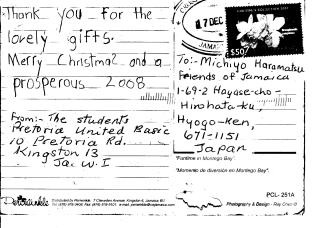 Thank you for the
lovely gifts.
Merry Christmas and a
prosperous 2008
From:- The students
Pretoria United Basic
10 Pretoria Rd.
Kingston 13
Ja. W. I
17 DEC
JAMAICA
$50
To:- Michiyo Haramatsu
Friends of Jamaica
1-69-2 Hayase-cho-
Hirohata-ku,
Hyogo-Ken,
671-1151
Japan
"Funtime in Montego Bay".
"Momento de diversion en Montego Bay".
POL - 251A
Photography & Design - Ray Chen ©
Periwinkle
Distributed by Periwinkle, 7 Cleveden Avenue, Kingston 6, Jamaica W.I.